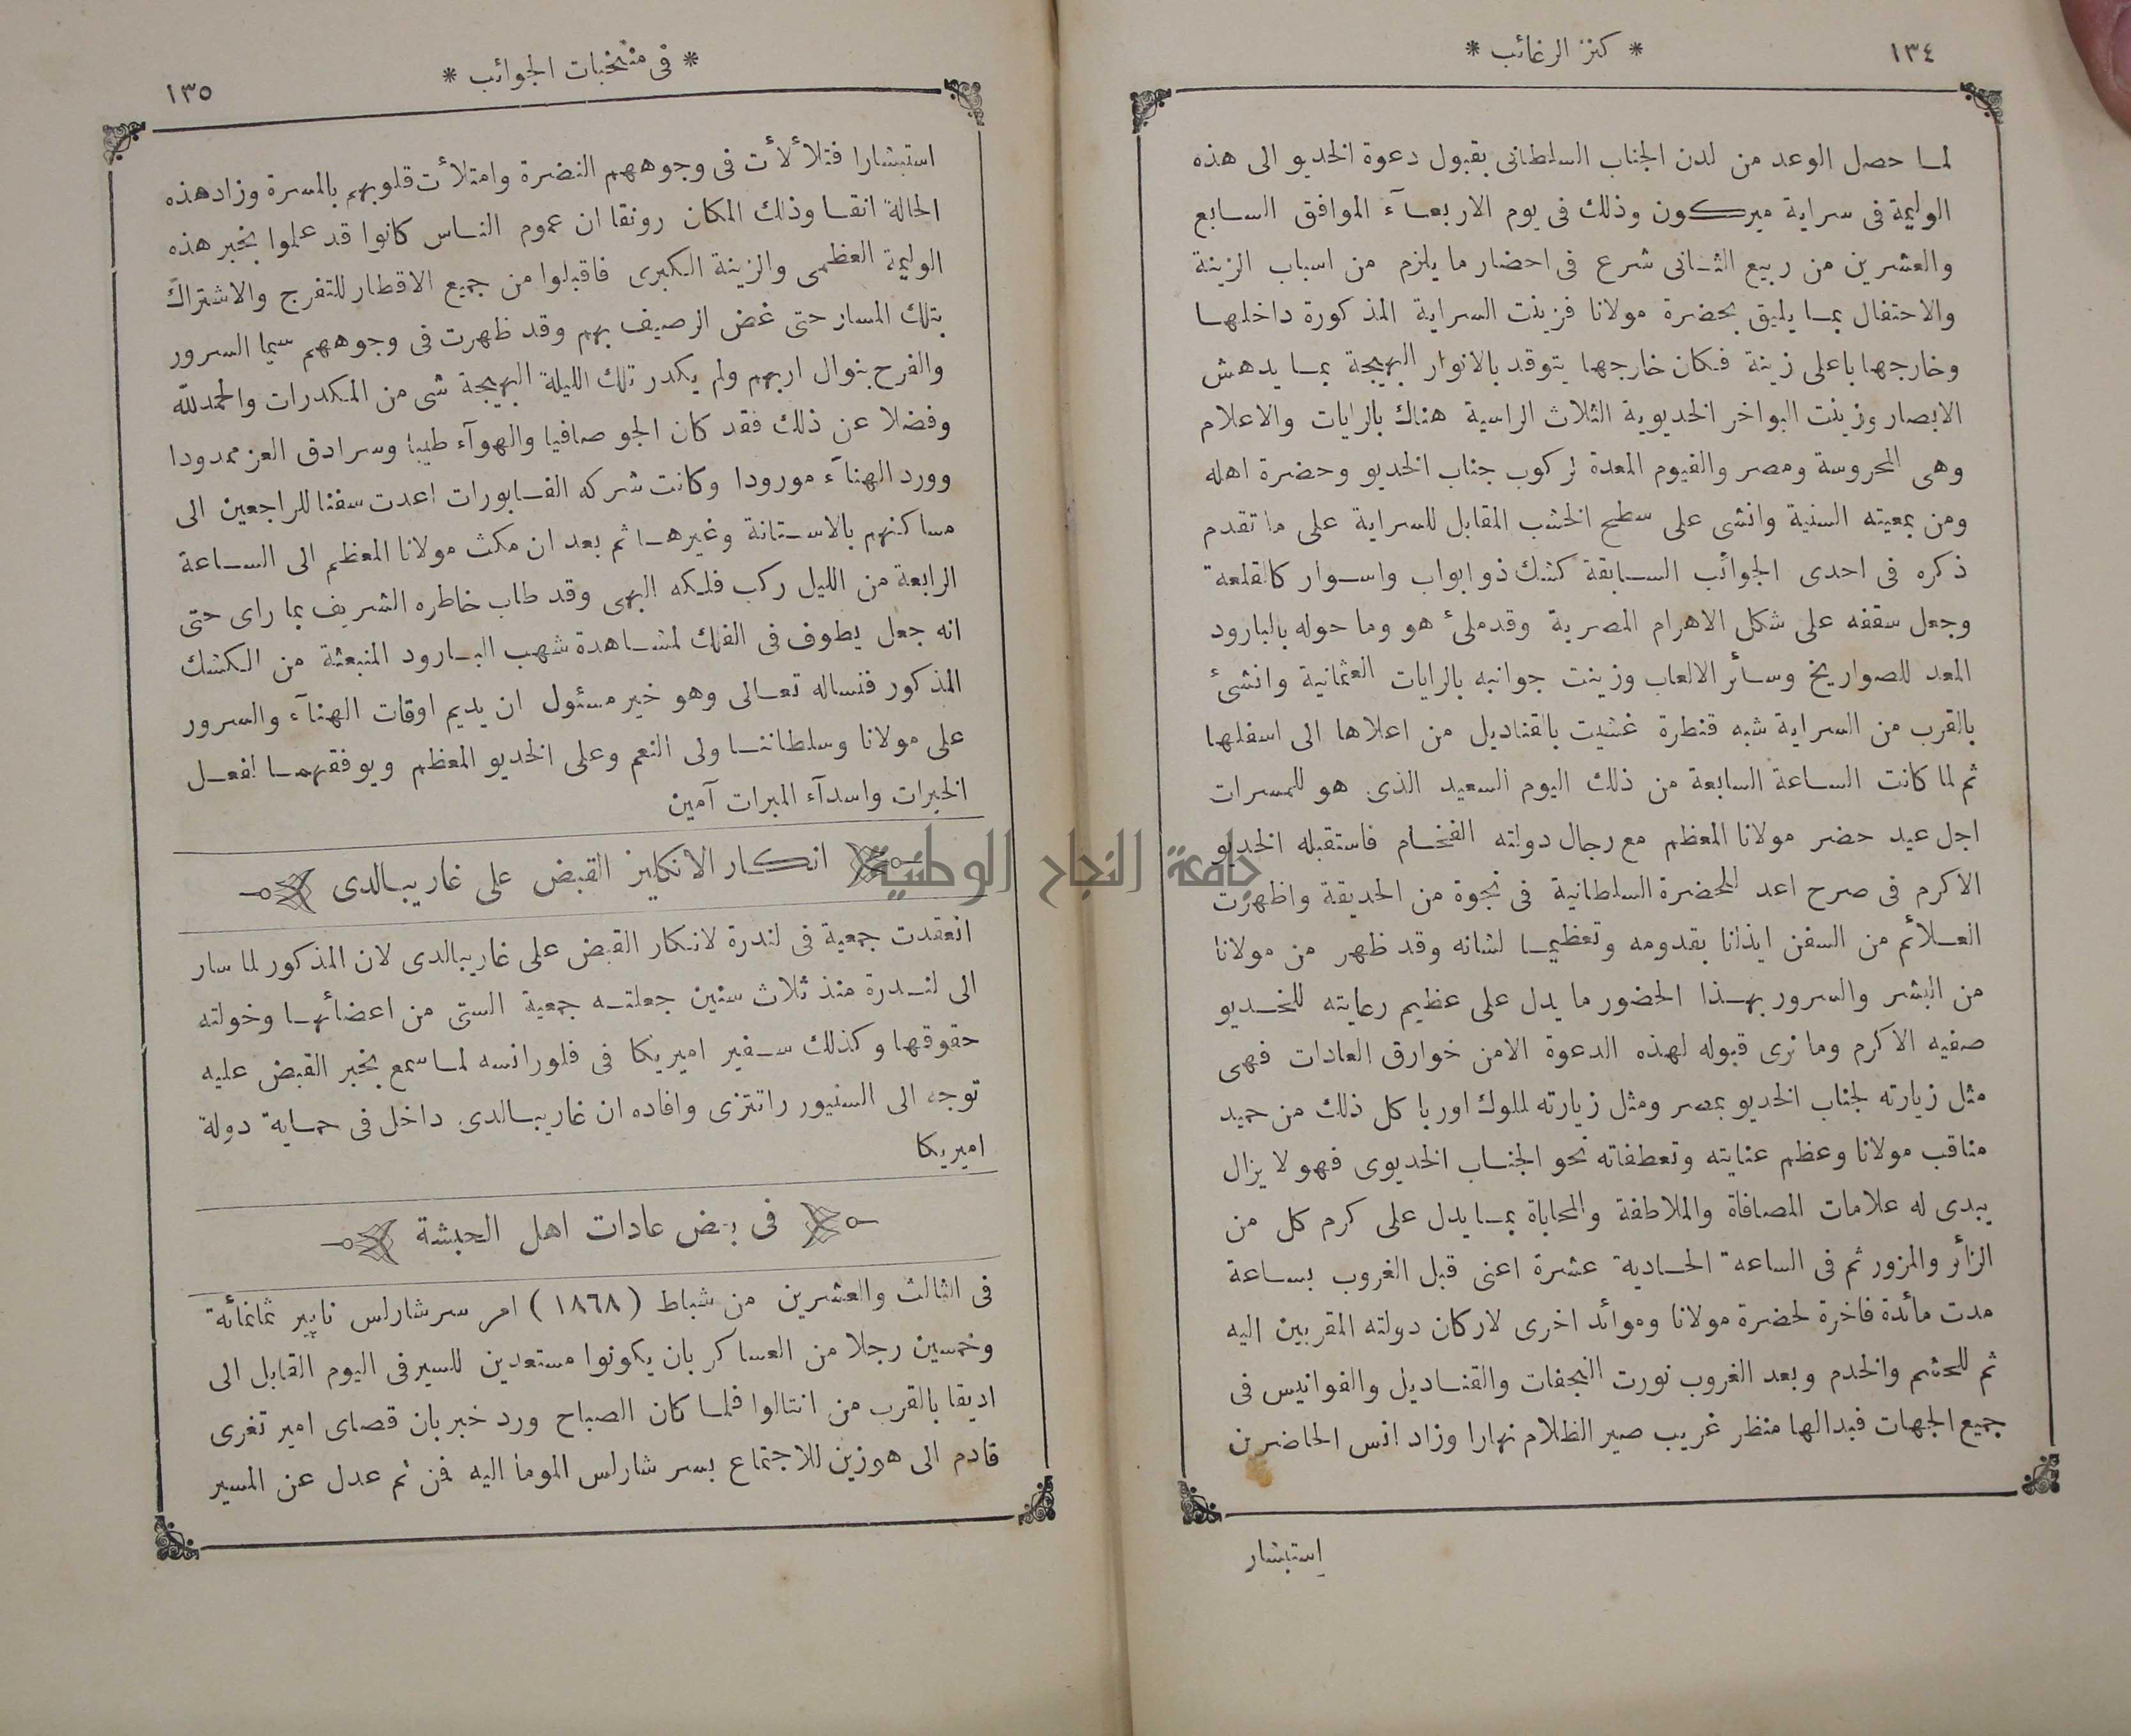 ١٣٤
* كنز الرغائب *
لما حصل الوعد من لدن الجناب السلطانى بقبول دعوة الخديو الى هذه
الوليمة فى سراية ميركون وذلك فى يوم الاربعآء الموافق السابع
والعشرين من ربيع الثانى شرع فى احضار ما يلزم من اسباب الزينة
والاحتفال بما يليق بحضرة مولانا فزينت السراية المذكورة داخلها
وخارجها باعلى زينة فكان خارجها يتوقد بالانوار البهيجة بما يدهش
الابصار وزينت البواخر الخديوية الثلاث الراسية هناك بالرايات والاعلام
وهى المحروسة ومصر والفيوم المعدة لركوب جناب الخديو وحضرة اهله
ومن بمعيته السنية وانشى على سطح الخشب المقابل للسراية على ما تقدم
ذكره فى احدى الجوائب السابقة كشك ذو ابواب واسوار كالقلعة
وجعل سقفه على شكل الاهرام المصرية وقد ملئ هو وما حوله بالبارود
المعد للصواريخ وسائر الالعاب وزينت جوانبه بالرايات العثمانية وانشئ
بالقرب من السراية شبه قنطرة غشيت بالقناديل من اعلاها الى اسفلها
ثم لما كانت الساعة السابعة من ذلك اليوم السعيد الذى هو للمسرات
اجل عيد حضر مولانا المعظم مع رجال دولته الفخام فاستقبله الخديو
الاكرم فى صرح اعد للحضرة السلطانية فى نجوة من الحديقة واظهرت
العلائم من السفن ايذانا بقدومه وتعظيما لشانه وقد ظهر من مولانا
من البشر والسرور بهذا الحضور ما يدل على عظيم رعايته للخديو
صفيه الاكرم وما نرى قبوله لهذه الدعوة الامن خوارق العادات فهى
مثل زيارته لجناب الخديو بمصر ومثل زيارته لملوك اوربا كل ذلك من حميد
مناقب مولانا وعظم عنايته وتعطفاته نحو الجناب الخديوى فهو لا يزال
يبدى له علامات المصافاة والملاطفة والمحاباة بما يدل على كرم كل من
الزائر والمزور ثم فى الساعة الحادية عشرة اعنى قبل الغروب بساعة
مدت مائدة فاخرة لحضرة مولانا وموائد اخرى لاركان دولته المقربين اليه
ثم للحشم والخدم وبعد الغروب نورت النجفات والقناديل والفوانيس فى
جميع الجهات فبدالها منظر غريب صير الظلام نهارا وزاد انس الحاضرين
استبشار
* فى منتخبات الجوائب *
١٣٥
استبشارا فتلألأت فى وجوههم النضرة وامتلأت قلوبهم بالمسرة وزاد هذه
الحالة انقا وذلك المكان رونقا ان عموم الناس كانوا قد علموا بخبر هذه
الوليمة العظمى والزينة الكبرى فاقبلوا من جميع الاقطار للتفرج والاشتراك
بتلك المسار حتى غض الرصيف بهم وقد ظهرت فى وجوههم سيما السرور
والفرح بنوال اربهم ولم يكدر تلك الليلة البهيجة شى من المكدرات والحمدلله
وفضلا عن ذلك فقد كان الجو صافيا والهوآء طيبا وسرادق العز ممدودا
وورد الهنآء مورودا وكانت شركه الفابورات اعدت سفنا للراجعين الى
مساكنهم بالاستانة وغيرها ثم بعد ان مكث مولانا المعظم الى الساعة
الرابعة من الليل ركب فلكه البهى وقد طاب خاطره الشريف بما راى حتى
انه جعل يطوف فى الفلك لمشاهدة شهب البارود المنبعثة من الكشك
المذكور فنساله تعالى وهو خير مسئول ان يديم اوقات الهنآء والسرور
على مولانا وسلطاننا ولى النعم وعلى الخديو المعظم ويوفقهما لفعل
الخيرات واسدآء المبرات آمين
انكار الانكليز القبض على غاريبالدى
انعقدت جمعية فى لندرة لانكار القبض على غاريبالدى لان المذكور لما سار
الى لندرة منذ ثلاث سنين جعلته جمعية الستى من اعضائها وخولته
حقوقها وكذلك سفير اميريكا فى فلورانسه لما سمع بخبر القبض عليه
توجه الى السنيور راتتزى وافاده ان غاريبالدى داخل فى حماية دولة
اميريكا
فى بعض عادات اهل الحبشة
فى الثالث والعشرين من شباط (١٨٦٨) امر سر شارلس ناپير ثمانمائة
وخمسين رجلا من العساكر بان يكونوا مستعدين للسير فى اليوم القابل الى
اديقا بالقرب من انتالوا فلما كان الصباح ورد خبر بان قصاى امير تغرى
قادم الى هوزين للاجتماع بسر شارلس الموما اليه فمن ثم عدل عن المسير
جامعة النجاح الوطنية